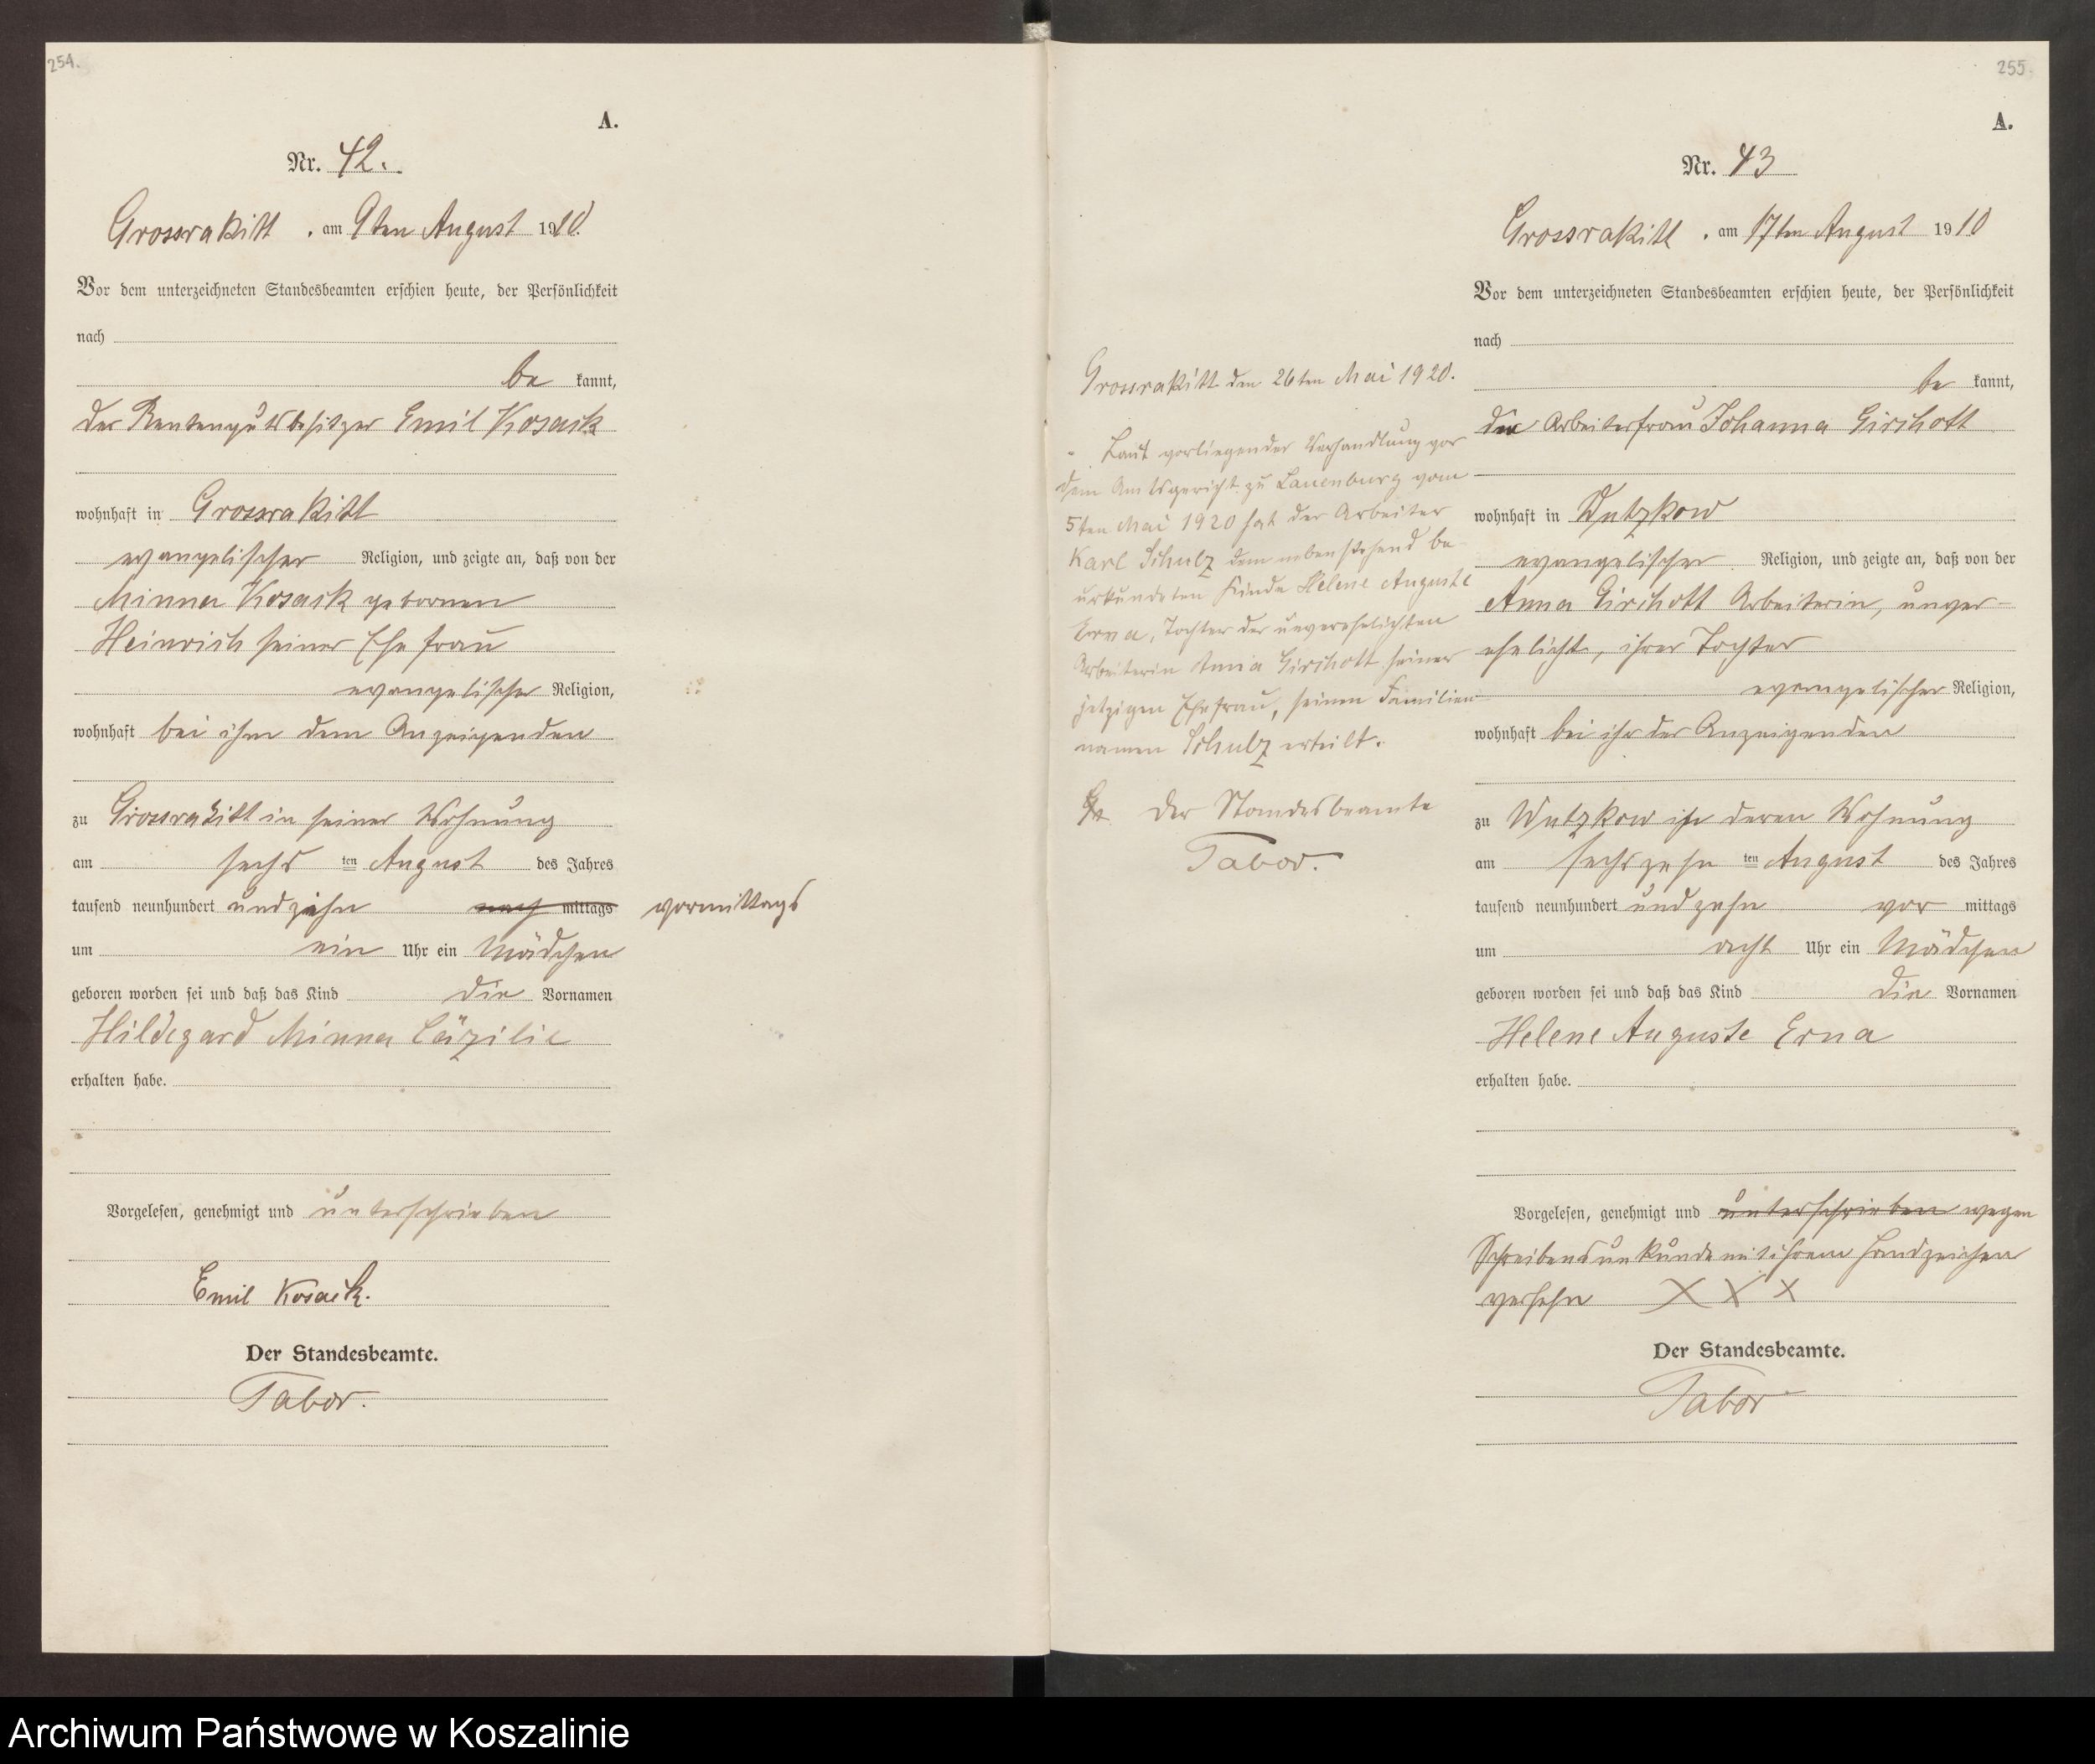 254.
A.
Nr. 42.
Grossrakitt . am 9ten August 1910.
Vor dem unterzeichneten Standesbeamten erschien heute, der Persönlichkeit
nach
be kannt,
der Rentengutsbesitzer Emil Kosack
wohnhaft in Grossrakitt
evangelischer Religion, und zeigte an, daß von der
Minna Kosack gebornen
Heinrich seiner Ehefrau
evangelischer Religion,
wohnhaft bei ihm dem Anzeigenden
zu Grossrakitt in seiner Wohnung
am sechs ten August des Jahres
tausend neunhundert undzehn nach mittags vormittags
um ein Uhr ein Mädchen
geboren worden sei und daß das Kind die Vornamen
Hildegard Minna Cäzilie
erhalten habe.
Vorgelesen, genehmigt und unterschrieben
Emil Kosack.
Der Standesbeamte.
Tabor.
255
A.
Nr. 43
Grossrakitt . am 17ten August 1910
Vor dem unterzeichneten Standesbeamten erschien heute, der Persönlichkeit
nach
be kannt,
die Arbeiterfrau Johanna Girchott
wohnhaft in Wutzkow
evangelischer Religion, und zeigte an, daß von der
Anna Girchott Arbeiterin, unver-
ehelicht, ihrer Tochter
evangelischer Religion,
wohnhaft bei ihr der Anzeigenden
zu Wutzkow in deren Wohnung
am sechszehn ten August des Jahres
tausend neunhundert undzehn vor mittags
um acht Uhr ein Mädchen
geboren worden sei und daß das Kind die Vornamen
Helene Auguste Erna
erhalten habe.
Vorgelesen, genehmigt und unterschrieben wegen
Schreibensunkunde mit ihrem Handzeichen
versehn X X X
Der Standesbeamte.
Tabor
Grossrakitt den 26ten Mai 1920.
Laut vorliegender Verhandlung vor
dem Amtsgericht zu Lauenburg vom
5ten Mai 1920 hat der Arbeiter
Karl Schulz dem nebenstehend be-
urkundeten Kinde Helene Auguste
Erna, Tochter der unverehelichten
Arbeiterin Anna Girchott seiner
jetzigen Ehefrau, seinen Familien-
namen Schulz erteilt.
Der Standesbeamte
Tabor.
Archiwum Państwowe w Koszalinie